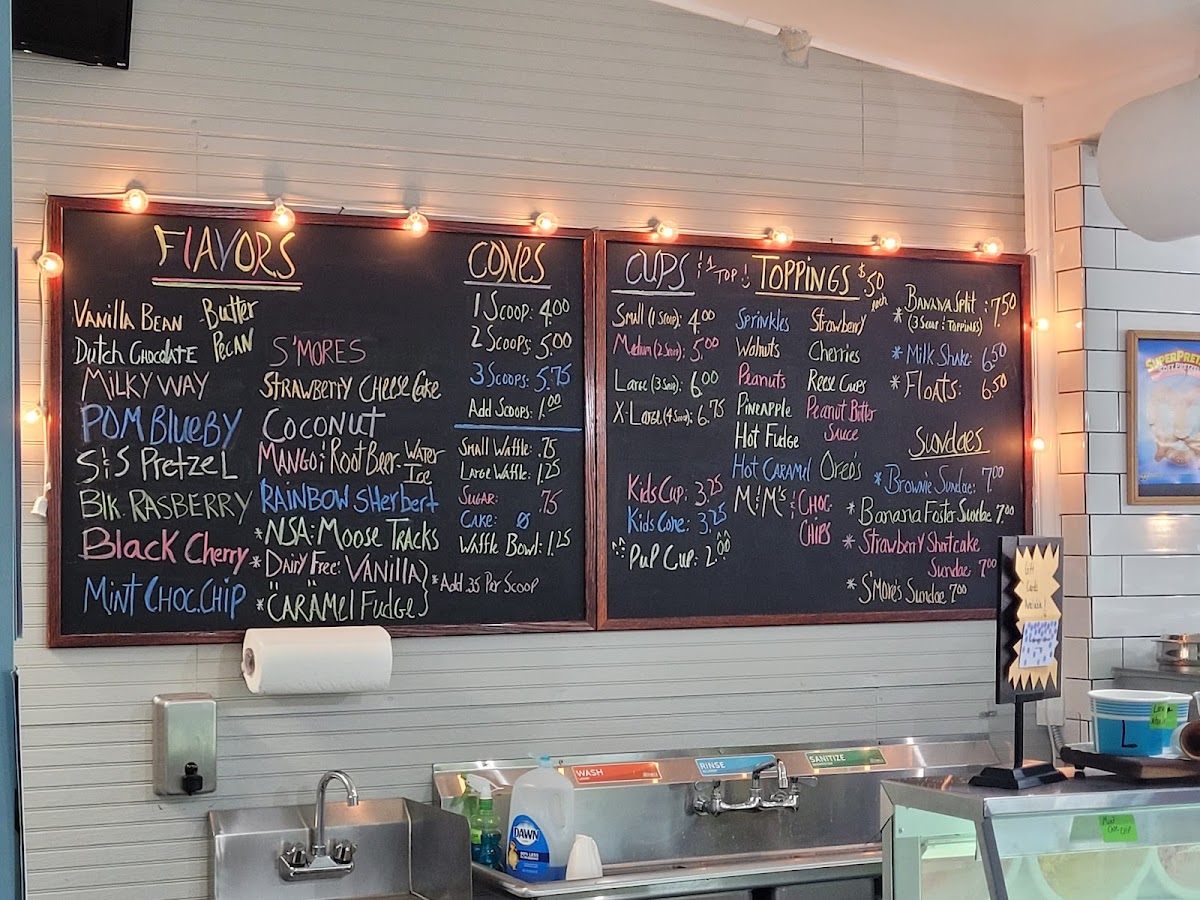 FLAVORS
VANILLA BEAN
DUTCH CHOCOLATE
MILKY WAY
POM BLUEBY
S&S PRETZEL
BLK. RASBERRY
BLACK CHERRY
MINT CHOC. CHIP
BUTTER
PECAN
S'MORES
STRAWBERRY CHEESECAKE
COCONUT
MANGO & ROOT BEER - WATER
ICE
RAINBOW SHERBERT
*NSA: MOOSE TRACKS
*DAIRY FREE: VANILLA
*" " CARAMEL FUDGE
*ADD .35 PER SCOOP
CONES
1 SCOOP: 4.00
2 SCOOPS: 5.00
3 SCOOPS: 5.75
ADD SCOOPS: 1.00
SMALL WAFFLE: .75
LARGE WAFFLE: 1.25
SUGAR: .75
CAKE: Ø
WAFFLE BOWL: 1.25
CUPS & 1 TOP!
SMALL (1 SCOOP): 4.00
MEDIUM (2 SCOOP): 5.00
LARGE (3 SCOOP): 6.00
X-LARGE (4 SCOOP): 6.75
KIDS CUP: 3.25
KIDS CONE: 3.25
PUP CUP: 2.00
TOPPINGS $.50
each
SPRINKLES
WALNUTS
PEANUTS
PINEAPPLE
HOT FUDGE
HOT CARAMEL
M&M'S
STRAWBERRY
CHERRIES
REESE CUPS
PEANUT BUTTER
SAUCE
OREO'S
& CHOC-
CHIPS
*BANANA SPLIT: 7.50
(3 SCOOP & TOPPINGS)
*MILK SHAKE: 6.50
*FLOATS: 6.50
SUNDAES
*BROWNIE SUNDAE: 7.00
*BANANA FOSTER SUNDAE 7.00
*STRAWBERRY SHORTCAKE
SUNDAE 7.00
*S'MORE'S SUNDAE 7.00
SUPERPRETZEL
Gift
Cards
Available!
WASH
RINSE
SANITIZE
DAWN
L
Mint
Choc. Chip